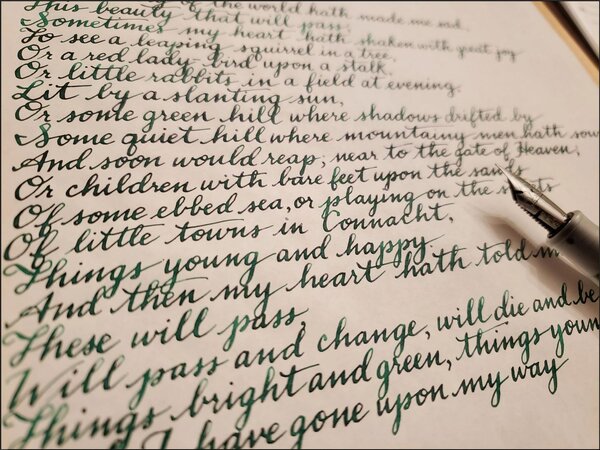 of the world hath made me sad,
This beauty that will pass;
Sometimes my heart hath shaken with great joy
To see a leaping squirrel in a tree,
Or a red lady-bird upon a stalk,
Or little rabbits in a field at evening,
Lit by a slanting sun,
Or some green hill where shadows drifted by
Some quiet hill where mountainy men hath sow
And soon would reap; near to the gate of Heaven;
Or children with bare feet upon the sands
Of some ebbed sea, or playing on the
Of little towns in Connacht,
Things young and happy.
And then my heart hath told m
These will pass,
Will pass and change, will die and be
Things bright and green, things youn
I have gone upon my way